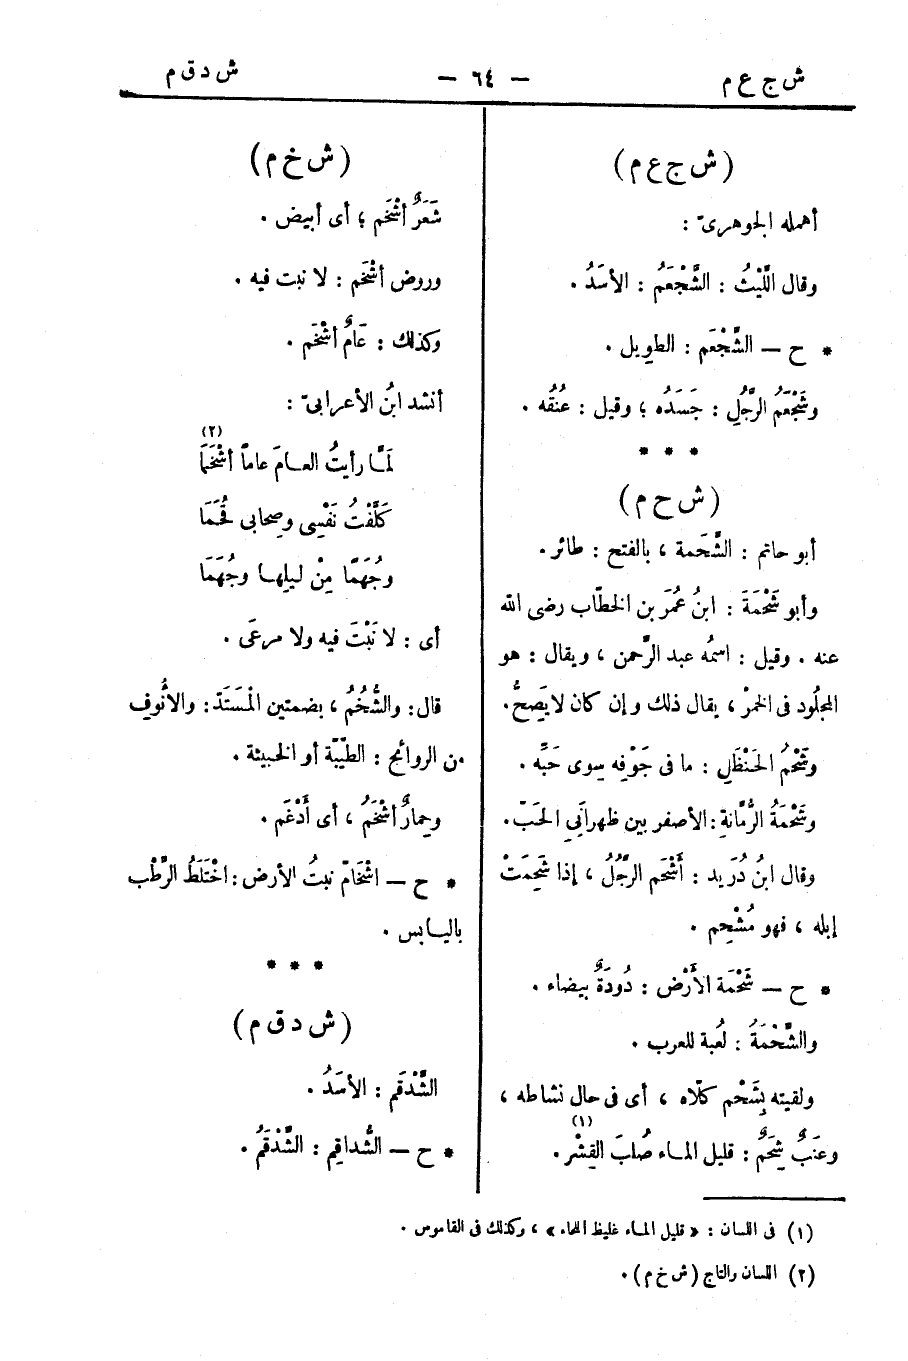 ش ج ع م
— ٦٤ —
ش د ق م
( ش ج ع م )
أهمله الجوهرىّ :
وقال اللَّيْثُ : الشَّجْعَمُ : الأسَدُ .
* ح — الشَّجْعَم : الطويل .
وشَجْعَمُ الرَّجُلِ : جَسَدُه ؛ وقيل : عُنُقُه .
* * *
( ش ح م )
أبو حاتم : الشَّحَمة ، بالفتح : طائر .
وأبو شَحْمَةَ : ابنُ عُمَرَ بن الخطّاب رضى الله
عنه . وقيل : اسمُه عبد الرَّحمن ، ويقال : هو
المجلُود فى الخمْر ، يقال ذلك وإن كان لا يَصحُّ .
وشَحْمُ الحَنْظَلِ : ما فى جَوْفِه سِوى حَبِّه .
وشَحْمَةُ الرُّمَّانةِ : الأصفر بين ظهرانَىِ الحَبّ .
وقال ابنُ دُرَيد : أَشْحَم الرَّجُلُ ، إذا شَحِمَتْ
إبله ، فهو مُشْحِم .
* ح — شَحْمَة الأَرْض : دُودَةٌ بيضاء .
والشَّحْمَةُ : لُعبة للعرب .
ولقيته بِشَحْم كلّاه ، أى فى حال نشاطه ،
وعِنَبٌ شَحِمٌ : قليل المـاء صُلبَ القِشْر (١) .
( ش خ م )
شَعَرٌ أشْخَم ؛ أى أبيض .
وروض أشْخَم : لا نبت فيه .
وكذلك : عَامٌ أشْخَم .
أنشد ابنُ الأعرابىّ :
لَمَّـا رأيتُ العـامَ عاماً أشْخَمَا (٢)
كَلَّفْتُ نَفْسِى وصِحابى قُحَمَا
وجُهَمًا مِنْ ليلِهـا وجُهَمَا
أى : لا نَبْتَ فيه ولا مرعَى .
قال : والشُّخُمُ ، بضمتين الْمَسَدّة : والأُنُوف
من الروائح : الطَّيِّبَة أو الخبيثة .
وحِمارٌ أشْخَمُ ، أى أَدْغَم .
* ح — اشْخَامّ نبتُ الأرض : اخْتَلَطُ الرَّطْب
باليـابس .
* * *
( ش د ق م )
الشَّدْقَم : الأسَدُ .
* ح — الشُّداقِم : الشَّدْقَمُ .
(١) فى اللسان : « قليل المـاء غليظ اللحاء » ، وكذلك فى القاموس .
(٢) اللسان والتاج ( ش خ م ) .